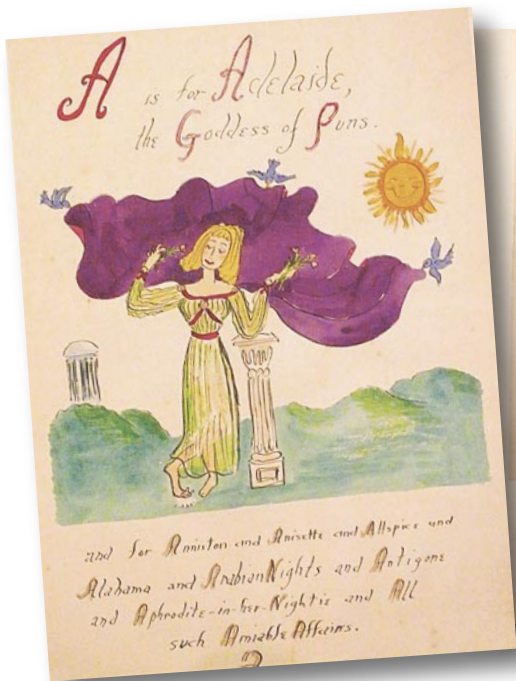 A is for Adelaide,
the Goddess of Puns.
and for Anniston and Anisette and Allspice and
Alabama and Arabian Nights and Antigone
and Aphrodite-in-her-Nightie and All
such Amiable Affairs.